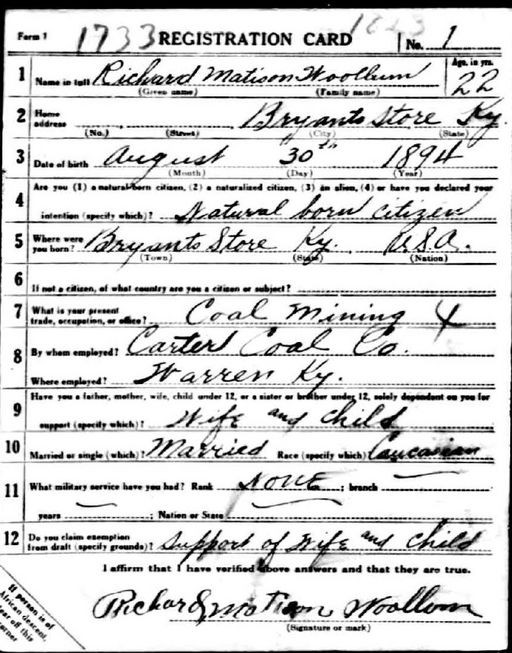 Form 1 1733 REGISTRATION CARD No. 1
1 Name in full Richard Matison Woollum Age, in yrs. 22
(Given name) (Family name)
2 Home address Bryants Store Ky.
(No.) (Street) (City) (State)
3 Date of birth August 30th 1894
(Month) (Day) (Year)
4 Are you (1) a natural-born citizen, (2) a naturalized citizen, (3) an alien, (4) or have you declared your
intention (specify which)? Natural born citizen
5 Where were you born? Bryants Store Ky. U.S.A.
(Town) (State) (Nation)
6 If not a citizen, of what country are you a citizen or subject?
7 What is your present trade, occupation, or office? Coal Mining 4
8 By whom employed? Carters Coal Co.
Where employed? Warren Ky.
9 Have you a father, mother, wife, child under 12, or a sister or brother under 12, solely dependent on you for
support (specify which)? Wife and child
10 Married or single (which)? Married Race (specify which)? Caucasian
11 What military service have you had? Rank NONE ; branch
years ; Nation or State
12 Do you claim exemption from draft (specify grounds)? Support of Wife and Child
I affirm that I have verified above answers and that they are true.
Richard Matison Woollum
(Signature or mark)
If person is of
African descent,
tear off this
corner